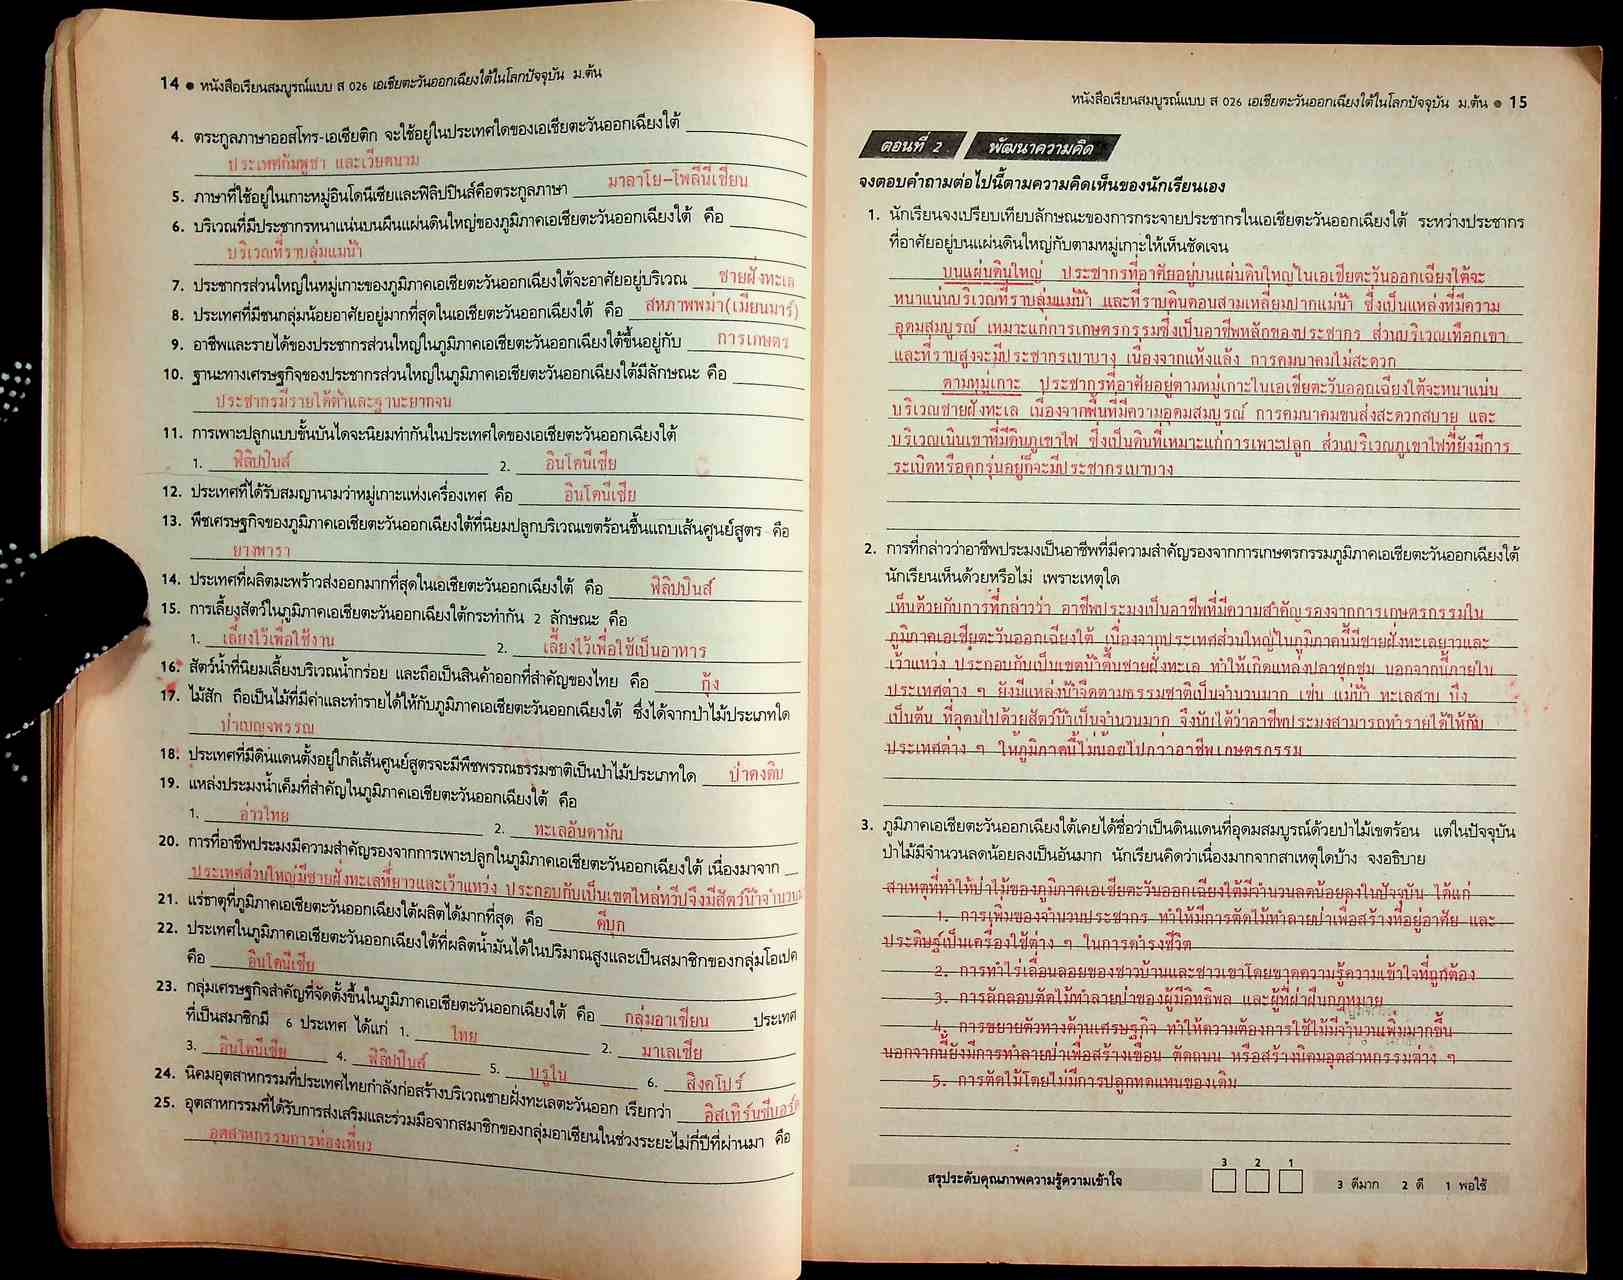 14 ● หนังสือเรียนสมบูรณ์แบบ ส 026 เอเชียตะวันออกเฉียงใต้ในโลกปัจจุบัน ม.ต้น
4. ตระกูลภาษาออสโทร-เอเชียติก จะใช้อยู่ในประเทศใดของเอเชียตะวันออกเฉียงใต้
ประเทศกัมพูชา และเวียดนาม
5. ภาษาที่ใช้อยู่ในเกาะหมู่อินโดนีเซียและฟิลิปปินส์คือตระกูลภาษา มาลาโย-โพลีนีเซียน
6. บริเวณที่มีประชากรหนาแน่นบนผืนแผ่นดินใหญ่ของภูมิภาคเอเชียตะวันออกเฉียงใต้ คือ
บริเวณที่ราบลุ่มแม่น้ำ
7. ประชากรส่วนใหญ่ในหมู่เกาะของภูมิภาคเอเชียตะวันออกเฉียงใต้จะอาศัยอยู่บริเวณ ชายฝั่งทะเล
8. ประเทศที่มีชนกลุ่มน้อยอาศัยอยู่มากที่สุดในเอเชียตะวันออกเฉียงใต้ คือ สหภาพพม่า(เมียนมาร์)
9. อาชีพและรายได้ของประชากรส่วนใหญ่ในภูมิภาคเอเชียตะวันออกเฉียงใต้ขึ้นอยู่กับ การเกษตร
10. ฐานะทางเศรษฐกิจของประชากรส่วนใหญ่ในภูมิภาคเอเชียตะวันออกเฉียงใต้มีลักษณะ คือ
ประชากรมีรายได้ต่ำและฐานะยากจน
11. การเพาะปลูกแบบขั้นบันไดจะนิยมทำกันในประเทศใดของเอเชียตะวันออกเฉียงใต้
1. ฟิลิปปินส์ 2. อินโดนีเซีย
12. ประเทศที่ได้รับสมญานามว่าหมู่เกาะแห่งเครื่องเทศ คือ อินโดนีเซีย
13. พืชเศรษฐกิจของภูมิภาคเอเชียตะวันออกเฉียงใต้ที่นิยมปลูกบริเวณเขตร้อนชื้นแถบเส้นศูนย์สูตร คือ
ยางพารา
14. ประเทศที่ผลิตมะพร้าวส่งออกมากที่สุดในเอเชียตะวันออกเฉียงใต้ คือ ฟิลิปปินส์
15. การเลี้ยงสัตว์ในภูมิภาคเอเชียตะวันออกเฉียงใต้กระทำกัน 2 ลักษณะ คือ
1. เลี้ยงไว้เพื่อใช้งาน 2. เลี้ยงไว้เพื่อใช้เป็นอาหาร
16. สัตว์น้ำที่นิยมเลี้ยงบริเวณน้ำกร่อย และถือเป็นสินค้าออกที่สำคัญของไทย คือ กุ้ง
17. ไม้สัก ถือเป็นไม้ที่มีค่าและทำรายได้ให้กับภูมิภาคเอเชียตะวันออกเฉียงใต้ ซึ่งได้จากป่าไม้ประเภทใด
ป่าเบญจพรรณ
18. ประเทศที่มีดินแดนตั้งอยู่ใกล้เส้นศูนย์สูตรจะมีพืชพรรณธรรมชาติเป็นป่าไม้ประเภทใด ป่าดงดิบ
19. แหล่งประมงน้ำเค็มที่สำคัญในภูมิภาคเอเชียตะวันออกเฉียงใต้ คือ
1. อ่าวไทย 2. ทะเลอันดามัน
20. การที่อาชีพประมงมีความสำคัญรองจากการเพาะปลูกในภูมิภาคเอเชียตะวันออกเฉียงใต้ เนื่องมาจาก
ประเทศส่วนใหญ่มีชายฝั่งทะเลที่ยาวและเว้าแหว่ง ประกอบกับเป็นเขตไหล่ทวีปจึงมีสัตว์น้ำจำนวน
21. แร่ธาตุที่ภูมิภาคเอเชียตะวันออกเฉียงใต้ผลิตได้มากที่สุด คือ ดีบุก
22. ประเทศในภูมิภาคเอเชียตะวันออกเฉียงใต้ที่ผลิตน้ำมันได้ในปริมาณสูงและเป็นสมาชิกของกลุ่มโอเปค
คือ อินโดนีเซีย
23. กลุ่มเศรษฐกิจสำคัญที่จัดตั้งขึ้นในภูมิภาคเอเชียตะวันออกเฉียงใต้ คือ กลุ่มอาเซียน ประเทศ
ที่เป็นสมาชิกมี 6 ประเทศ ได้แก่ 1. ไทย 2. มาเลเซีย
3. อินโดนีเซีย 4. ฟิลิปปินส์ 5. บรูไน 6. สิงคโปร์
24. นิคมอุตสาหกรรมที่ประเทศไทยกำลังก่อสร้างบริเวณชายฝั่งทะเลตะวันออก เรียกว่า อิสเทิร์นซีบอร์ด
25. อุตสาหกรรมที่ได้รับการส่งเสริมและร่วมมือจากสมาชิกของกลุ่มอาเซียนในช่วงระยะไม่กี่ปีที่ผ่านมา คือ
อุตสาหกรรมการท่องเที่ยว
หนังสือเรียนสมบูรณ์แบบ ส 026 เอเชียตะวันออกเฉียงใต้ในโลกปัจจุบัน ม.ต้น ● 15
ตอนที่ 2 พัฒนาความคิด
จงตอบคำถามต่อไปนี้ตามความคิดเห็นของนักเรียนเอง
1. นักเรียนจงเปรียบเทียบลักษณะของการกระจายประชากรในเอเชียตะวันออกเฉียงใต้ ระหว่างประชากร
ที่อาศัยอยู่บนแผ่นดินใหญ่กับตามหมู่เกาะให้เห็นชัดเจน
บนแผ่นดินใหญ่ ประชากรที่อาศัยอยู่บนแผ่นดินใหญ่ในเอเชียตะวันออกเฉียงใต้จะ
หนาแน่นบริเวณที่ราบลุ่มแม่น้ำ และที่ราบดินดอนสามเหลี่ยมปากแม่น้ำ ซึ่งเป็นแหล่งที่มีความ
อุดมสมบูรณ์ เหมาะแก่การเกษตรกรรมซึ่งเป็นอาชีพหลักของประชากร ส่วนบริเวณเทือกเขา
และที่ราบสูงจะมีประชากรเบาบาง เนื่องจากแห้งแล้ง การคมนาคมไม่สะดวก
ตามหมู่เกาะ ประชากรที่อาศัยอยู่ตามหมู่เกาะในเอเชียตะวันออกเฉียงใต้จะหนาแน่น
บริเวณชายฝั่งทะเล เนื่องจากพื้นที่มีความอุดมสมบูรณ์ การคมนาคมขนส่งสะดวกสบาย และ
บริเวณเนินเขาที่มีดินภูเขาไฟ ซึ่งเป็นดินที่เหมาะแก่การเพาะปลูก ส่วนบริเวณภูเขาไฟที่ยังมีการ
ระเบิดหรือคุกรุ่นอยู่ก็จะมีประชากรเบาบาง
2. การที่กล่าวว่าอาชีพประมงเป็นอาชีพที่มีความสำคัญรองจากการเกษตรกรรมภูมิภาคเอเชียตะวันออกเฉียงใต้
นักเรียนเห็นด้วยหรือไม่ เพราะเหตุใด
เห็นด้วยกับการที่กล่าวว่า อาชีพประมงเป็นอาชีพที่มีความสำคัญรองจากการเกษตรกรรมใน
ภูมิภาคเอเชียตะวันออกเฉียงใต้ เนื่องจากประเทศส่วนใหญ่ในภูมิภาคนี้มีชายฝั่งทะเลยาวและ
เว้าแหว่ง ประกอบกับเป็นเขตน้ำตื้นชายฝั่งทะเล ทำให้เกิดแหล่งปลาชุกชุม นอกจากนี้ภายใน
ประเทศต่าง ๆ ยังมีแหล่งน้ำจืดตามธรรมชาติเป็นจำนวนมาก เช่น แม่น้ำ ทะเลสาบ บึง
เป็นต้น ที่อุดมไปด้วยสัตว์น้ำเป็นจำนวนมาก จึงนับได้ว่าอาชีพประมงสามารถทำรายได้ให้กับ
ประเทศต่าง ๆ ในภูมิภาคนี้ไม่น้อยไปกว่าอาชีพเกษตรกรรม
3. ภูมิภาคเอเชียตะวันออกเฉียงใต้เคยได้ชื่อว่าเป็นดินแดนที่อุดมสมบูรณ์ด้วยป่าไม้เขตร้อน แต่ในปัจจุบัน
ป่าไม้มีจำนวนลดน้อยลงเป็นอันมาก นักเรียนคิดว่าเนื่องมากจากสาเหตุใดบ้าง จงอธิบาย
สาเหตุที่ทำให้ป่าไม้ของภูมิภาคเอเชียตะวันออกเฉียงใต้มีจำนวนลดน้อยลงในปัจจุบัน ได้แก่
1. การเพิ่มของจำนวนประชากร ทำให้มีการตัดไม้ทำลายป่าเพื่อสร้างที่อยู่อาศัย และ
ประดิษฐ์เป็นเครื่องใช้ต่าง ๆ ในการดำรงชีวิต
2. การทำไร่เลื่อนลอยของชาวบ้านและชาวเขาโดยขาดความรู้ความเข้าใจที่ถูกต้อง
3. การลักลอบตัดไม้ทำลายป่าของผู้มีอิทธิพล และผู้ที่ฝ่าฝืนกฎหมาย
4. การขยายตัวทางด้านเศรษฐกิจ ทำให้ความต้องการใช้ไม้มีจำนวนเพิ่มมากขึ้น
นอกจากนี้ยังมีการทำลายป่าเพื่อสร้างเขื่อน ตัดถนน หรือสร้างนิคมอุตสาหกรรมต่าง ๆ
5. การตัดไม้โดยไม่มีการปลูกทดแทนของเดิม
สรุประดับคุณภาพความรู้ความเข้าใจ 3 2 1 3 ดีมาก 2 ดี 1 พอใช้